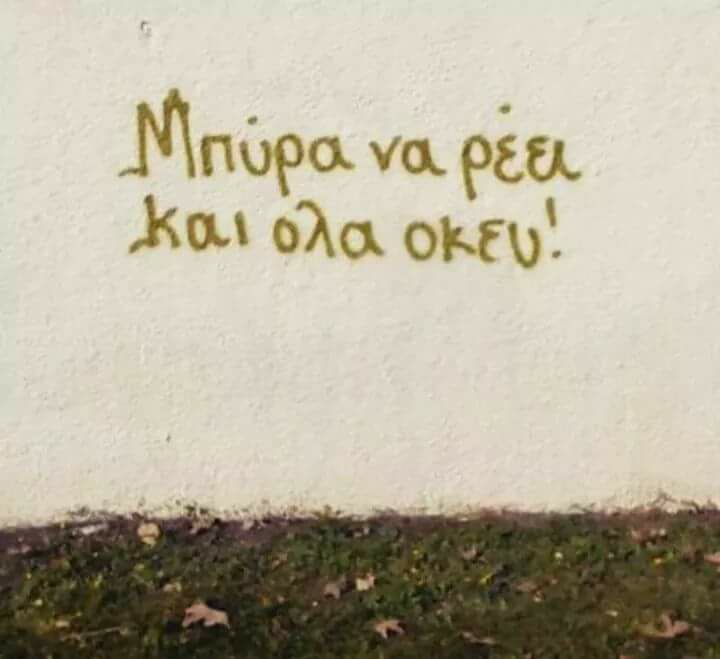 Μπύρα να ρέει
και ολα οκευ!